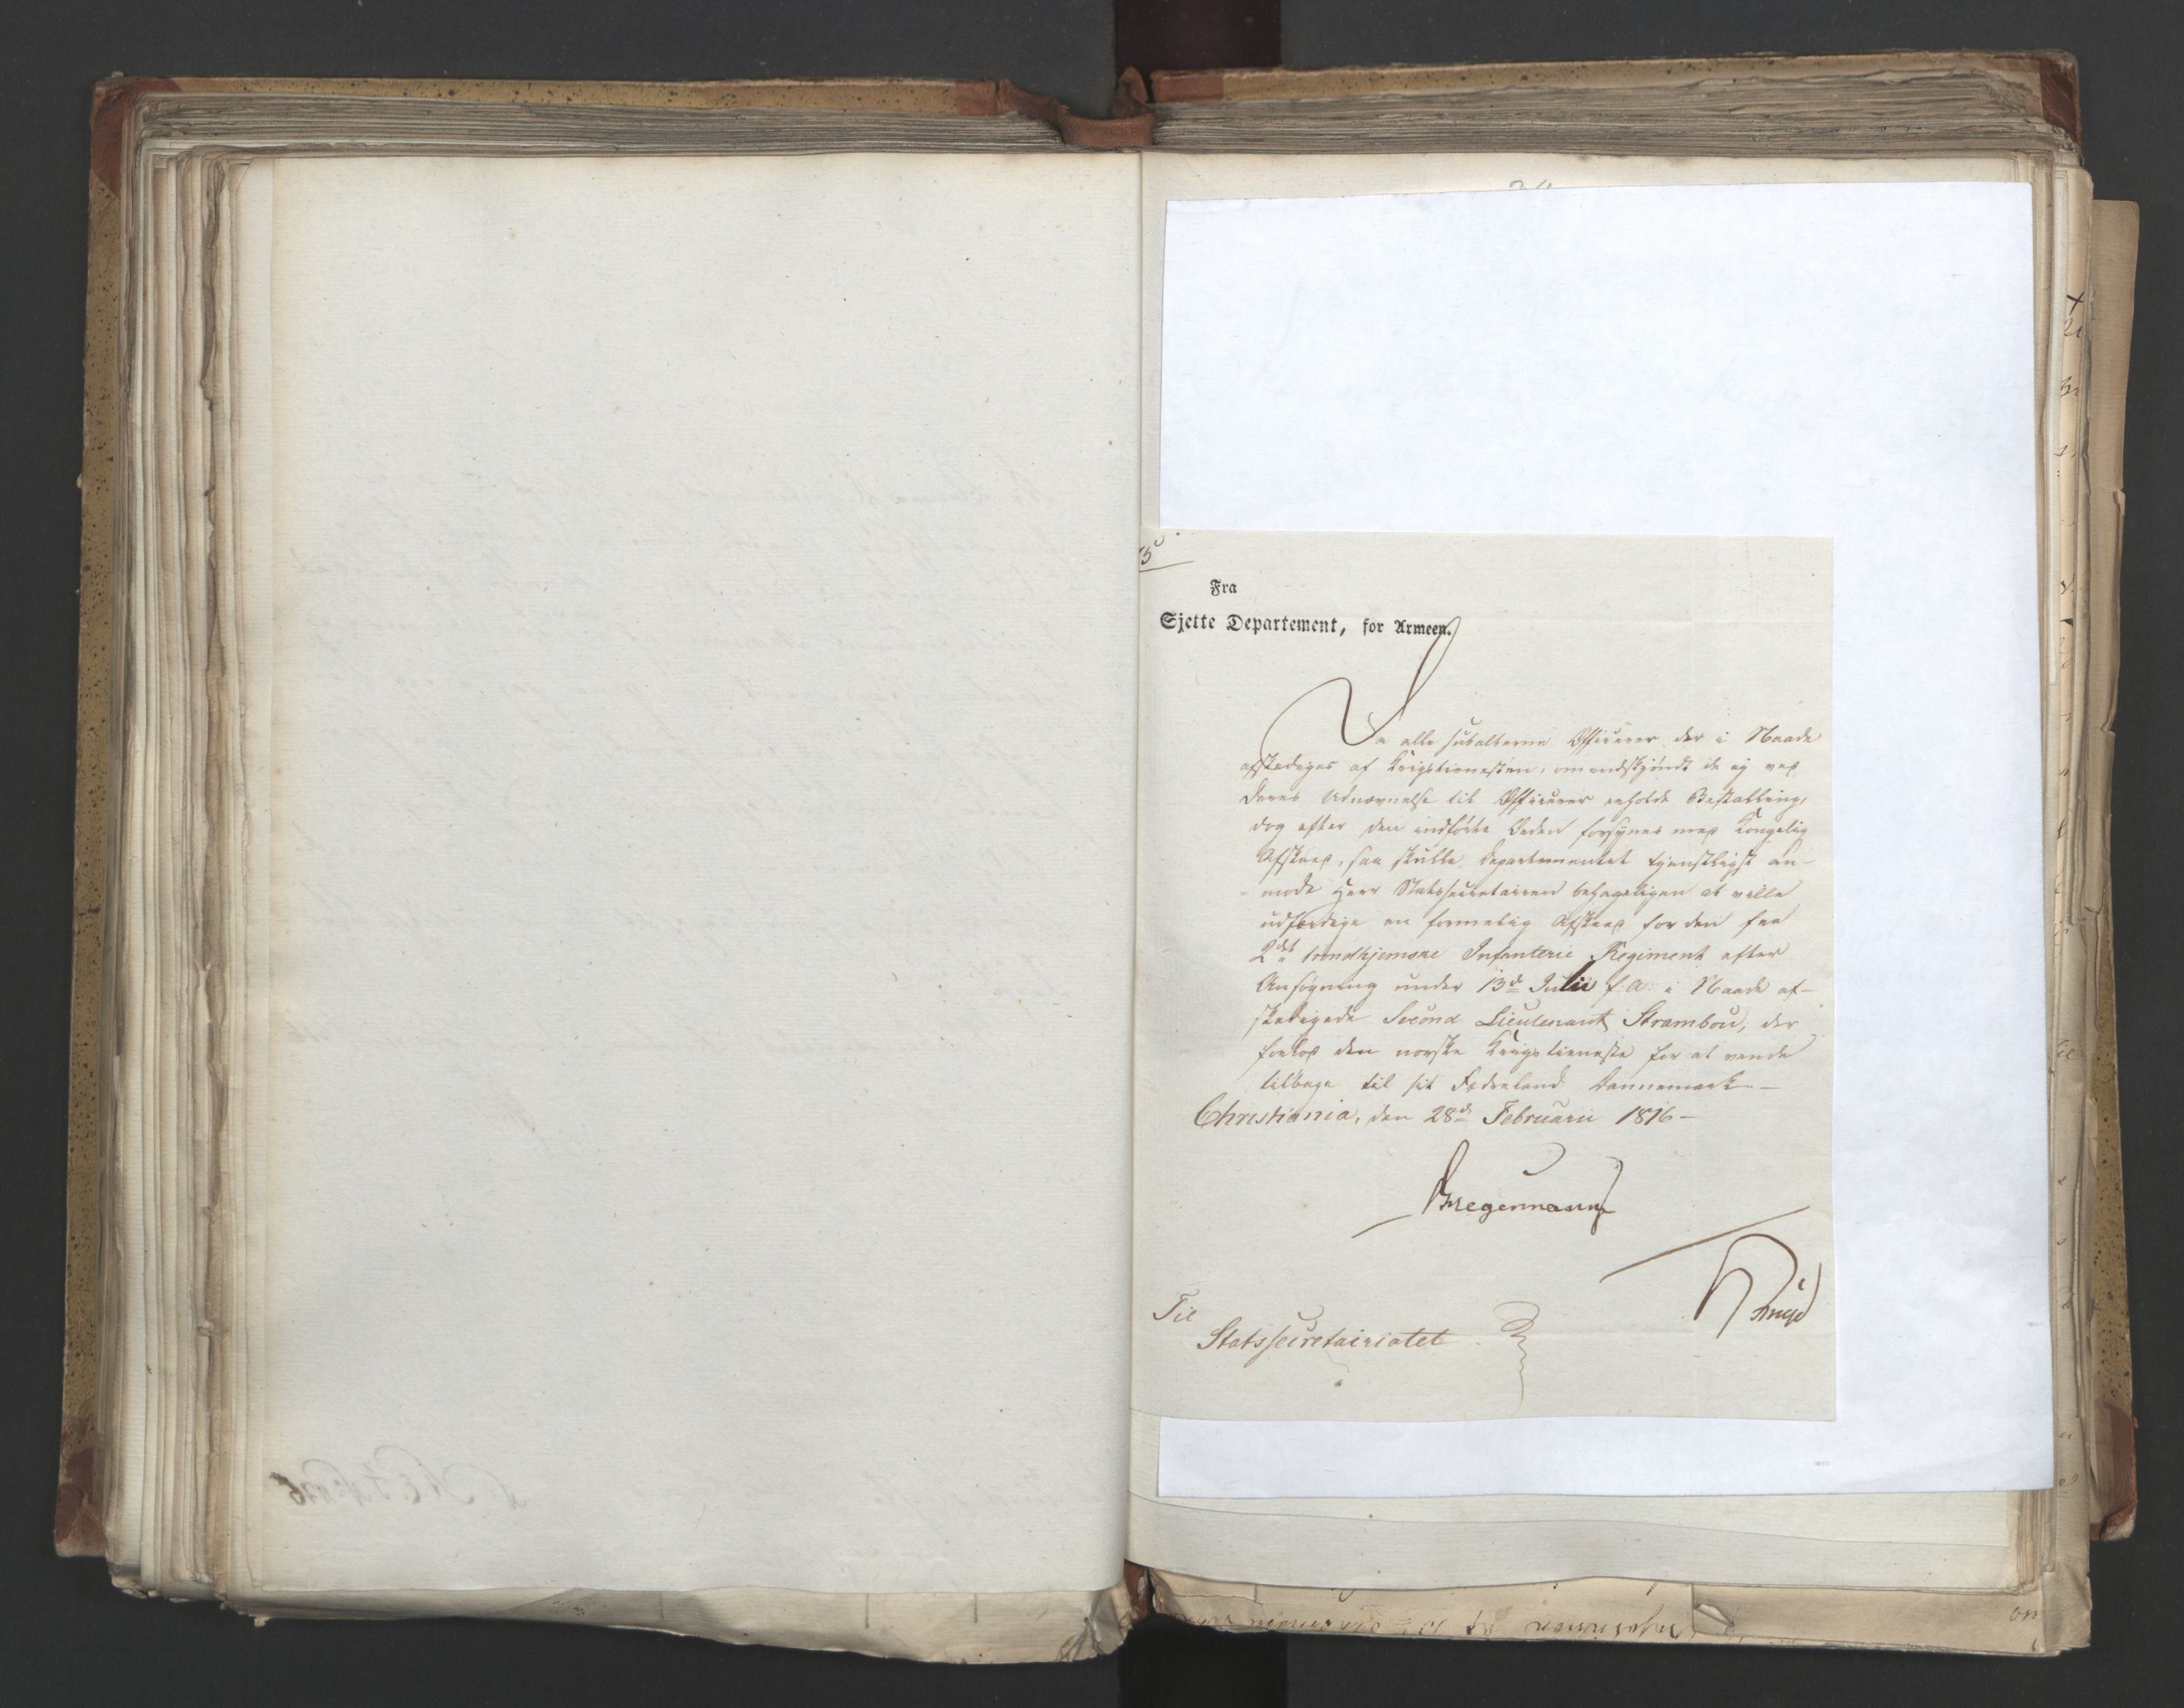 Fra
Sjette Departement, for Armeen.
Da alle subalterne Officerer der i Naade
afskediges af Krigstienesten, omendskjöndt de ej ved
deres Udnævnelse til Officerer erholde Bestalling,
dog efter den indførte Orden forsynes med Kongelig
Afskeed, saa skulle Departementet tjenstligst an-
mode Herr Statssecretairen behageligen at ville
udfærdige en formelig Afskeed for den fra
2det trondhjemske Infanterie Regiment efter
Ansøgning under 13de Julii f. A. i Naade af-
skedigede Second Lieutenant Strambou, der
forlod den norske Krigstieneste for at vende
tilbage til sit Fødreland Dannemark.—
Christiania, den 28de Februarii 1816—
Bregenmann
Til
Statssecretairiatet